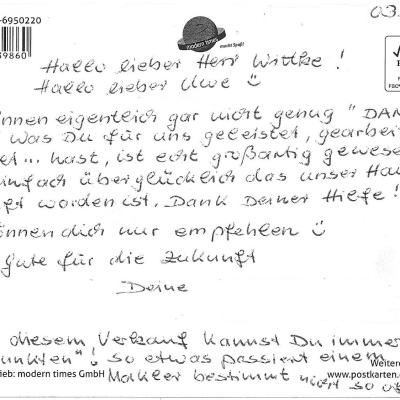 -6950220
39860
03.
modern times
macht Spaß!
FSC
Hallo lieber Herr Wittke!
Hallo lieber Uwe ☺
önnen eigentlich gar nicht genug "DAN
was Du für uns geleistet, gearbei
et... hast, ist echt großartig gewese
einfach überglücklich das unser Hau
uft worden ist. Dank Deiner Hilfe!
önnen dich nur empfehlen ☺
Gute für die Zukunft
Deine
diesem Verkauf kannst Du immer
unkten"! so etwas passiert einem
Makler bestimmt nicht so o
Weitere
ieb: modern times GmbH
www.postkarten.